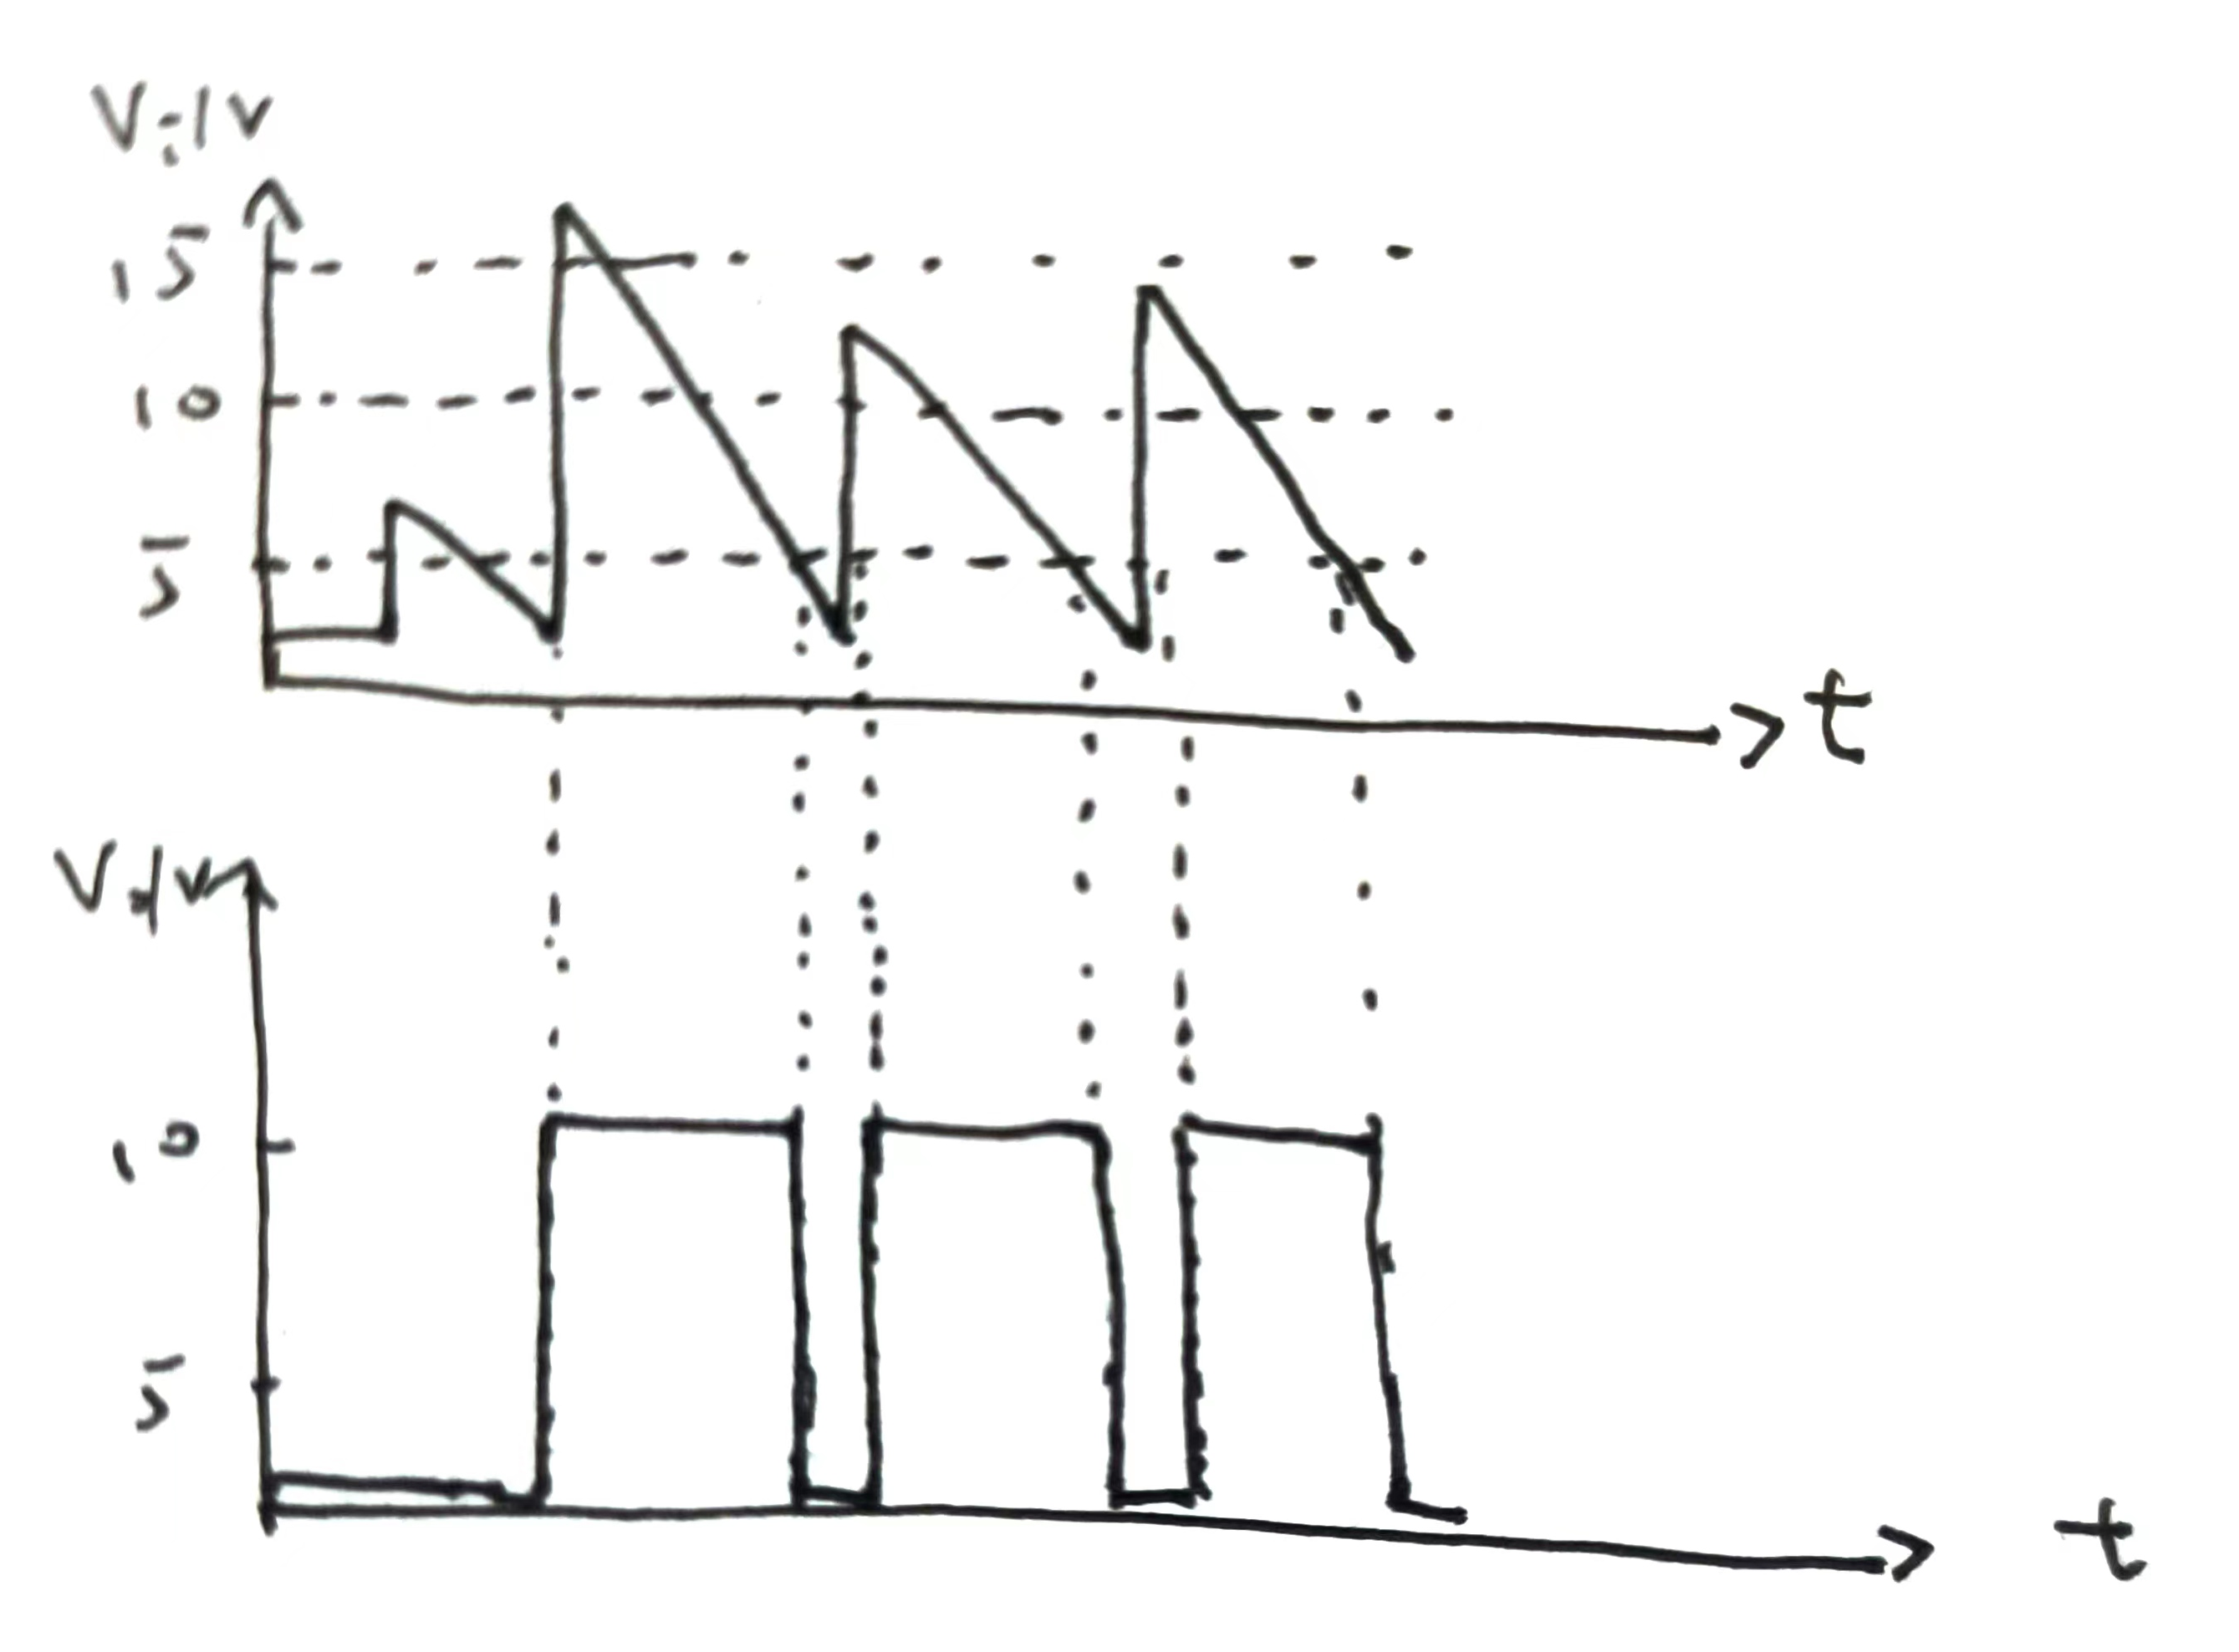 Vi/V
15
10
5
t
Vo/V
10
5
t